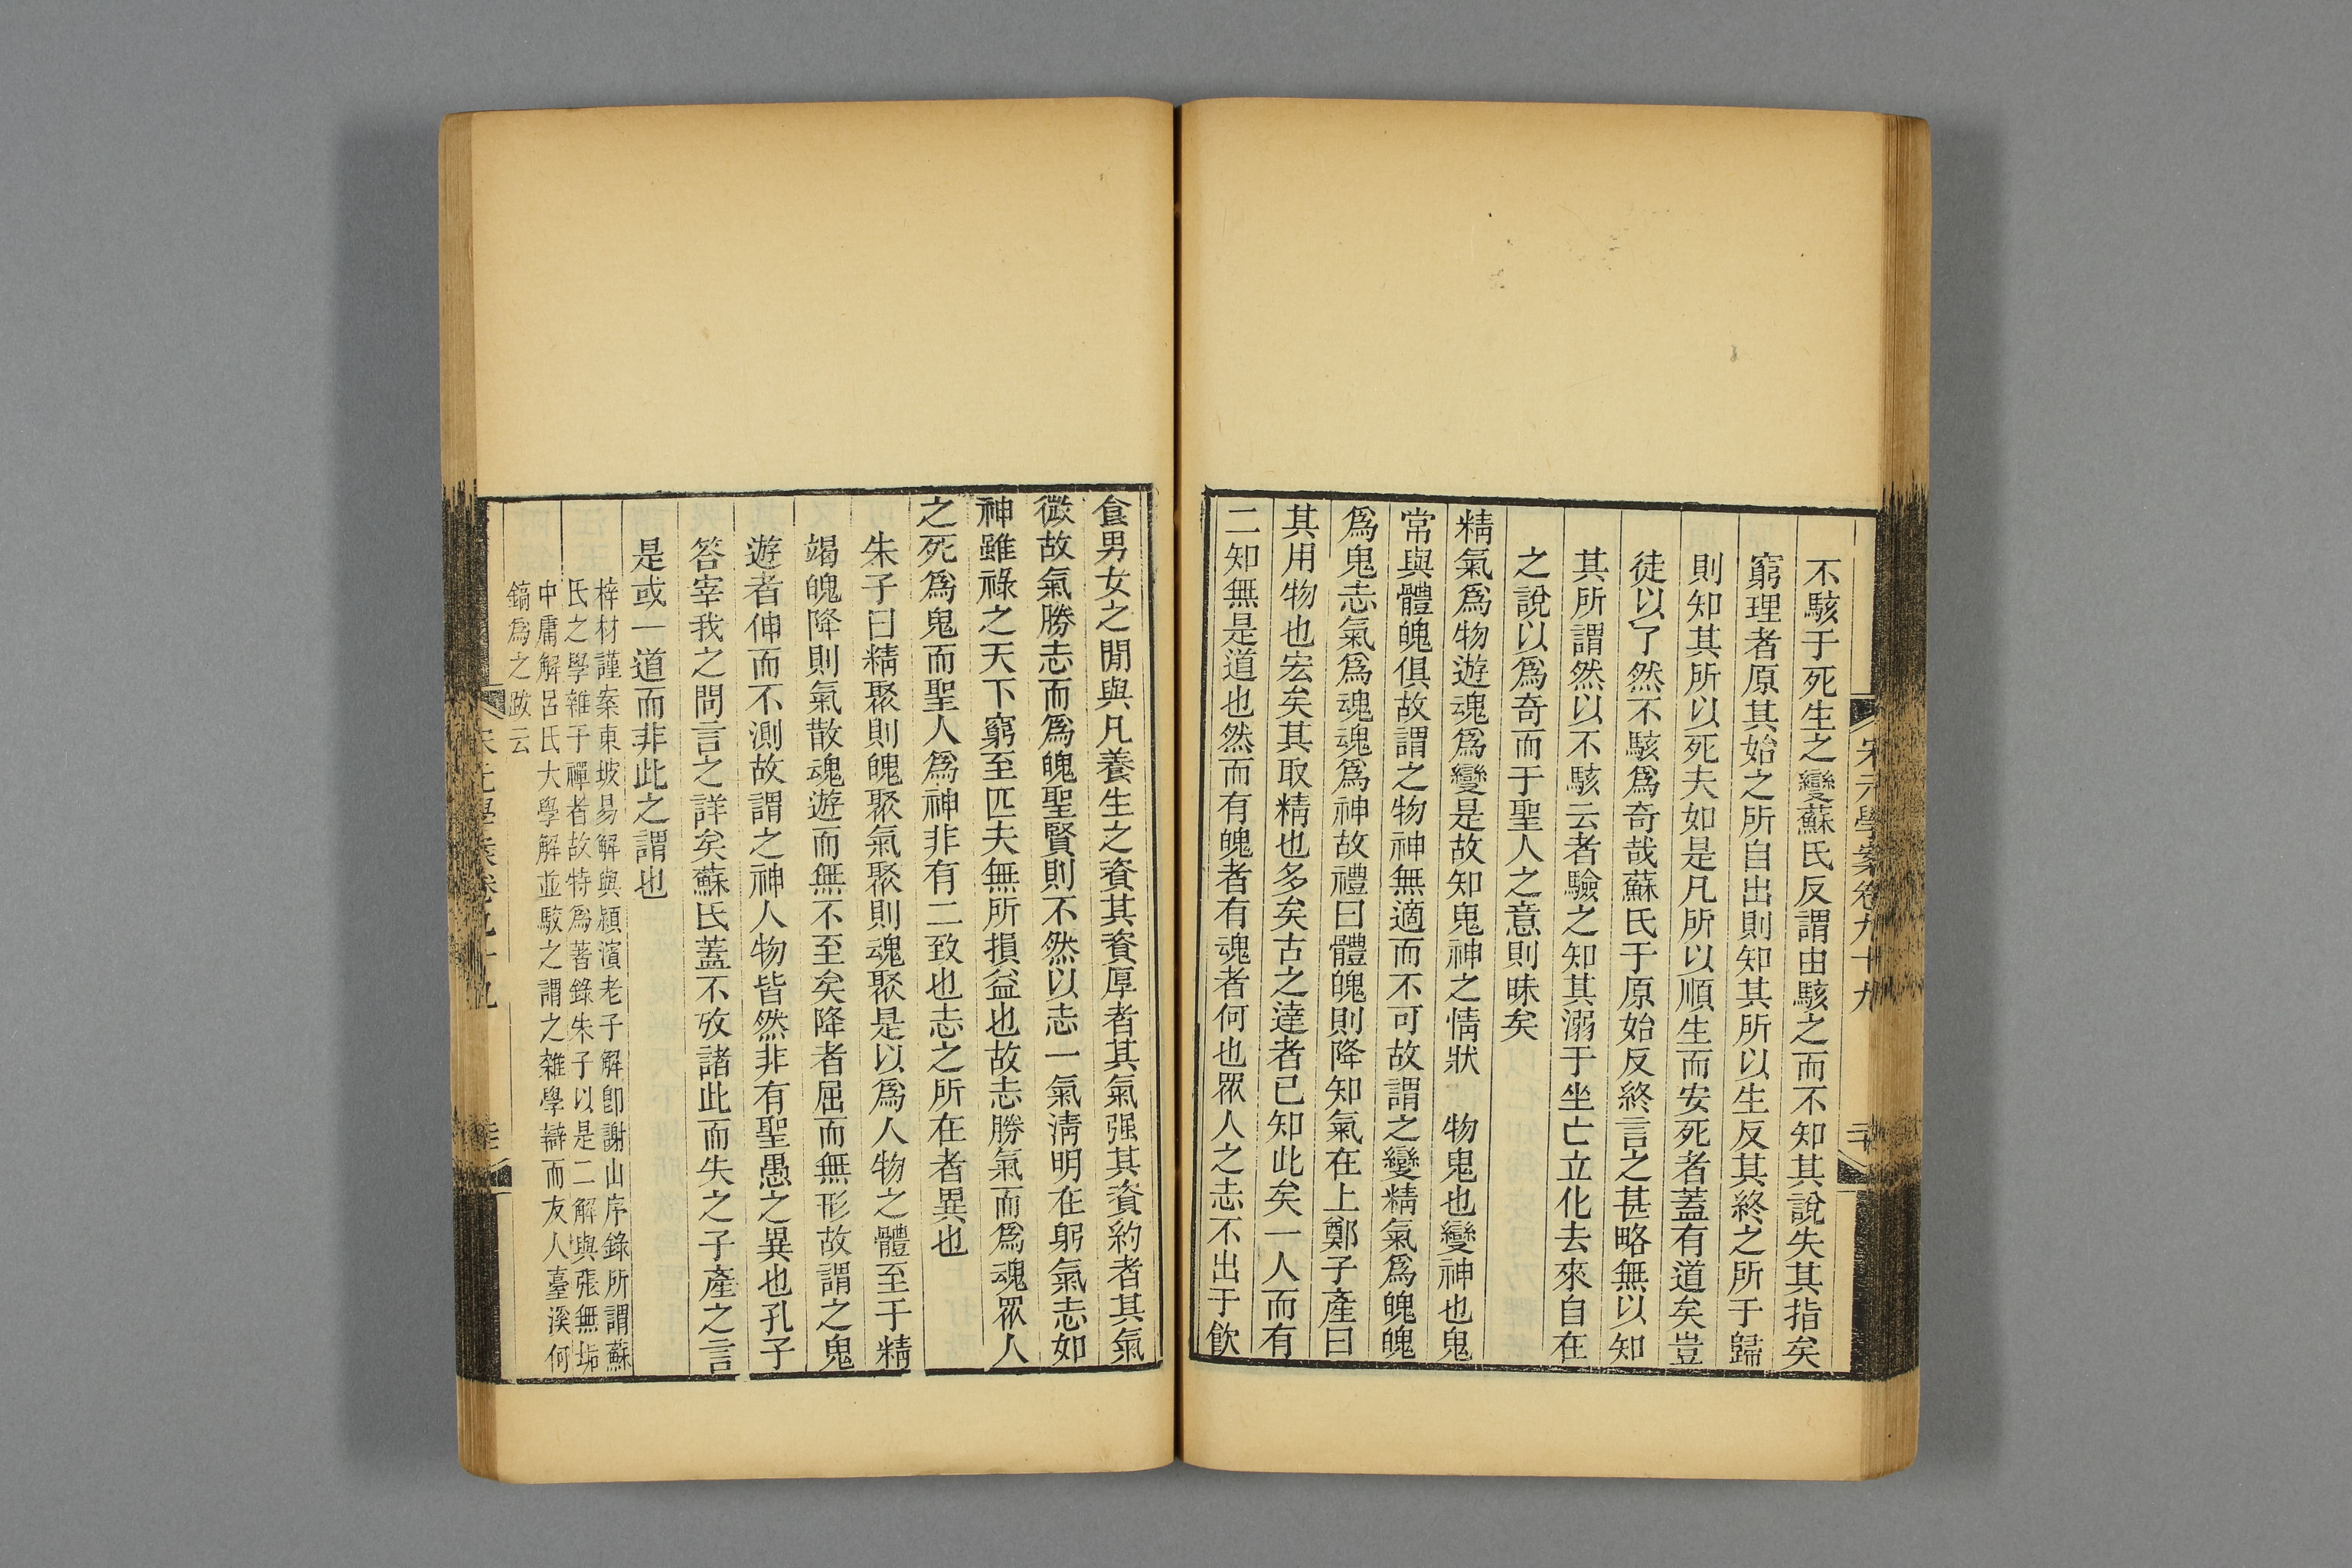 不駭于死生之變蘇氏反謂由駭之而不知其說失其指矣
窮理者原其始之所自出則知其所以生反其終之所于歸
則知其所以死夫如是凡所以順生而安死者蓋有道矣豈
徒以了然不駭爲奇哉蘇氏于原始反終言之甚略無以知
其所謂然以不駭云者驗之知其溺于坐亡立化去來自在
之說以爲奇而于聖人之意則昧矣
精氣爲物遊魂爲變是故知鬼神之情狀　物鬼也變神也鬼
常與體魄俱故謂之物神無適而不可故謂之變精氣爲魄魄
爲鬼志氣爲魂魂爲神故禮曰體魄則降知氣在上鄭子產曰
其用物也宏矣其取精也多矣古之達者已知此矣一人而有
二知無是道也然而有魄者有魂者何也眾人之志不出于飲
宋元學案卷九十九
食男女之閒與凡養生之資其資厚者其氣强其資約者其氣
微故氣勝志而爲魄聖賢則不然以志一氣淸明在躬氣志如
神雖祿之天下窮至匹夫無所損益也故志勝氣而爲魂眾人
之死爲鬼而聖人爲神非有二致也志之所在者異也
朱子曰精聚則魄聚氣聚則魂聚是以爲人物之體至于精
竭魄降則氣散魂遊而無不至矣降者屈而無形故謂之鬼
遊者伸而不測故謂之神人物皆然非有聖愚之異也孔子
答宰我之問言之詳矣蘇氏蓋不攷諸此而失之子產之言
是或一道而非此之謂也
梓材謹案東坡易解與潁濱老子解卽謝山序錄所謂蘇
氏之學雜于禪者故特爲著錄朱子以是二解與張無垢
中庸解呂氏大學解並駮之謂之雜學辯而友人臺溪何
鎬爲之跋云